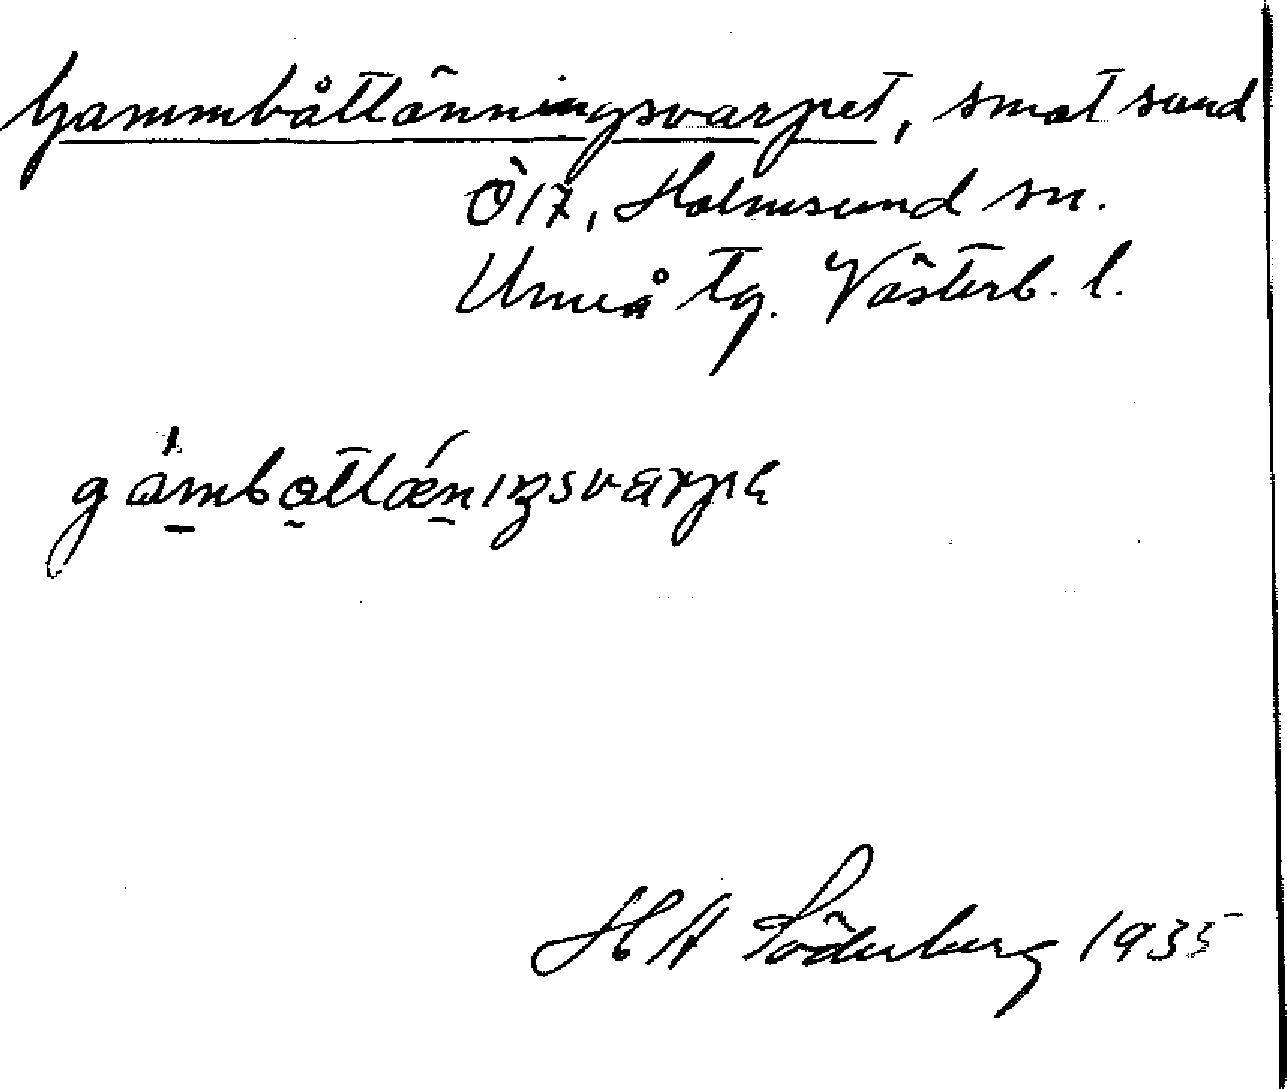 Gammbåtlänningsvarpet, smal sund
Ö 17, Holmsund sn.
Umeå tg. Västerb. l.
gàmbåtlǽnıŋsvarpə
H A Söderberg 1935